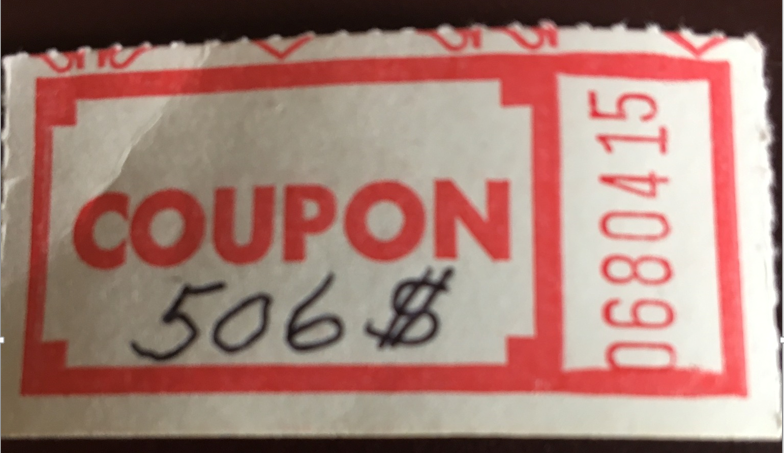 COUPON
506 $
0680415